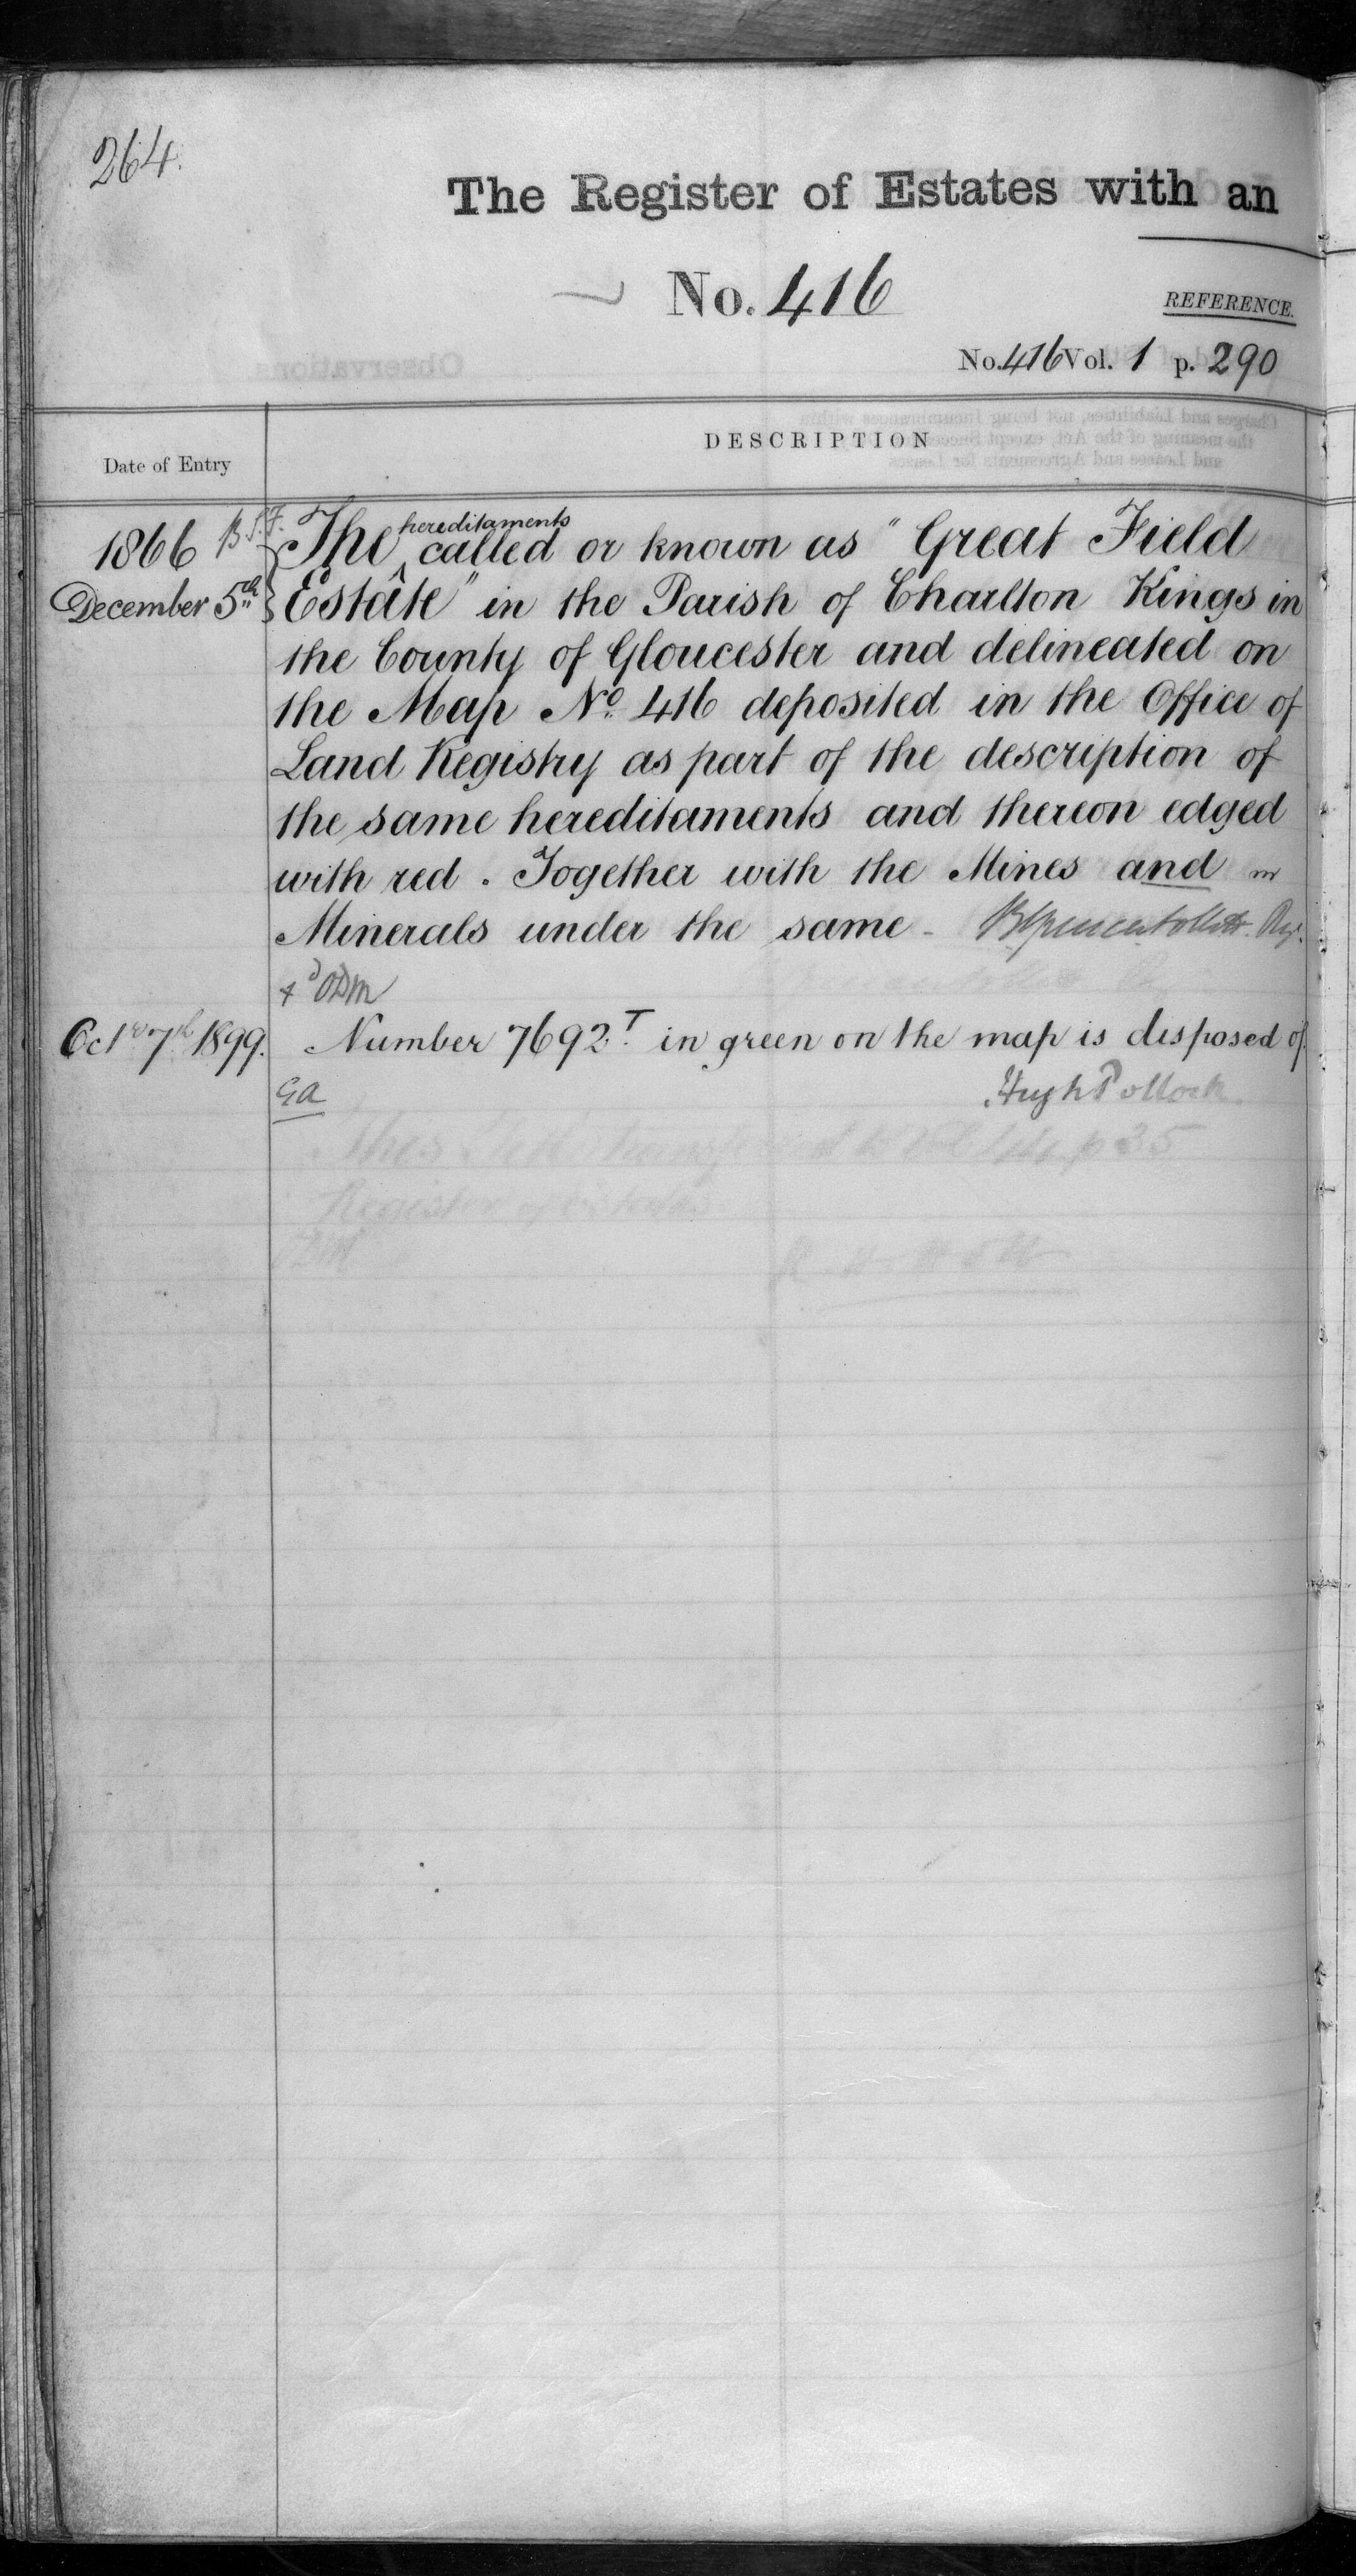 264.
The Register of Estates with an
No. 416
REFERENCE.
No. 416 Vol. 1 p. 290
Date of Entry
DESCRIPTION
1866 B.S.F. The hereditaments called or known as "Great Field
December 5th Estate" in the Parish of Charlton Kings in
the County of Gloucester and delineated on
the Map No. 416 deposited in the Office of
Land Registry as part of the description of
the same hereditaments and thereon edged
with red. Together with the Mines and
Minerals under the same -
Octr 7th 1899. Number 7692T. in green on the map is disposed of.
GA Hugh Pollock
This Title transferred to Vol p 35
Register of Estates